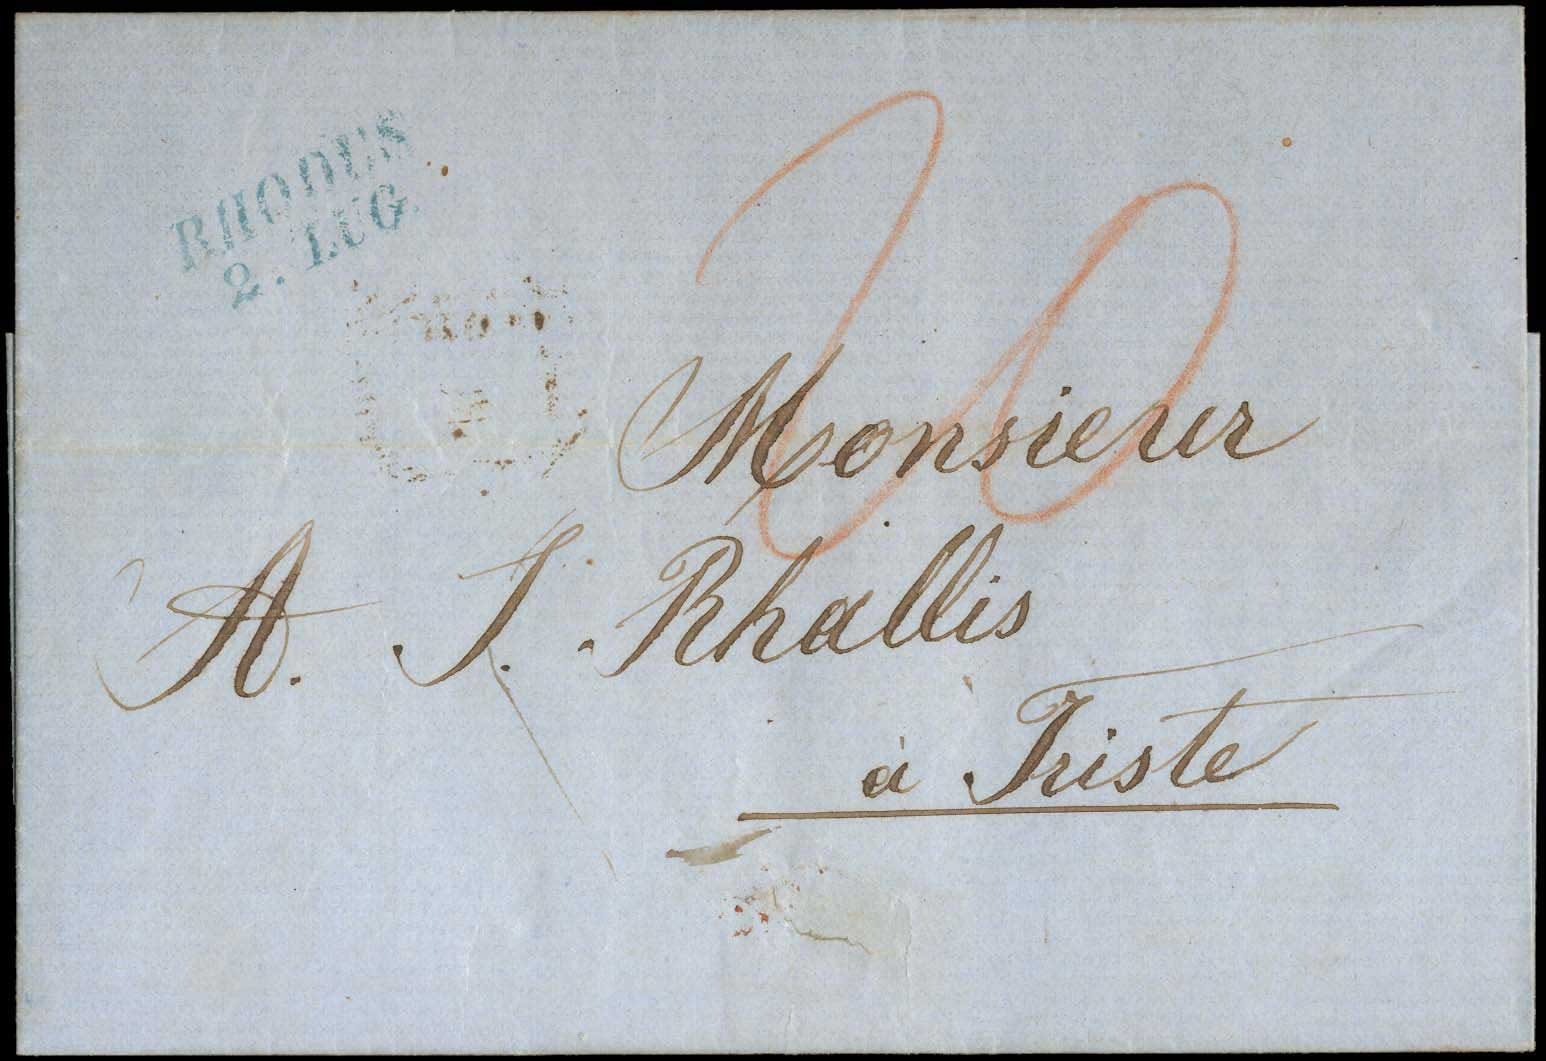 RHODUS
2. LUG.
20
Monsieur
A. J. Rhallis
à Triste